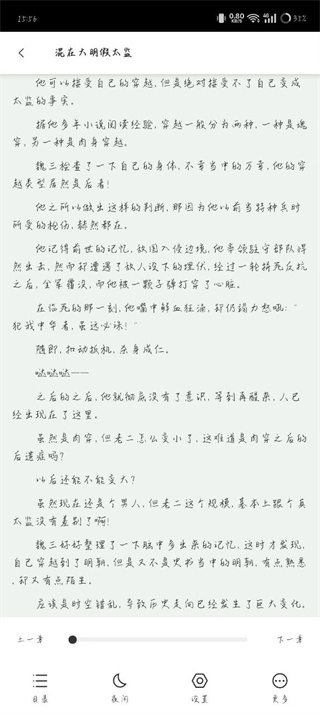 15:56
0.80 KB/S
31%
混在大明假太监
他可以接受自己的穿越,但是绝对接受不了自己变成
太监的事实。
据他多年小说阅读经验,穿越一般分为两种,一种是魂
穿,另一种是肉身穿越。
魏三检查了一下自己的身体,不幸当中的万幸,他的穿
越类型居然是后者!
他之所以做出这样的判断,那因为他以前当特种兵时
所受的枪伤,赫然都在。
他记得前世的记忆,敌国入侵边境,他率领驻守部队悍
然出击,然而却遭遇了敌人设下的埋伏,经过一轮拼死反抗
之后,全军覆没,而他被一颗子弹打穿了心脏。
在临死的那一刻,他嘴中鲜血狂涌,却仍竭力怒吼:“
犯我中华者,虽远必诛!”
随即,扣动扳机,杀身成仁。
哒哒哒——
之后的之后,他就彻底没有了意识,等到再醒来,人已
经出现在了这里。
虽然是肉穿,但老二怎么变小了,这难道是肉穿之后的
后遗症吗?
以后还能不能变大?
虽然现在还是个男人,但老二这个规模,基本上跟个真
太监没有差别了啊!
魏三好好整理了一下脑中多出来的记忆,这时才发现,
自己穿越到了明朝,但是又不是史书当中的明朝,有点熟悉
,却又有点陌生。
应该是时空错乱,导致历史走向已经发生了巨大变化。
上一章
下一章
目录
夜间
设置
更多